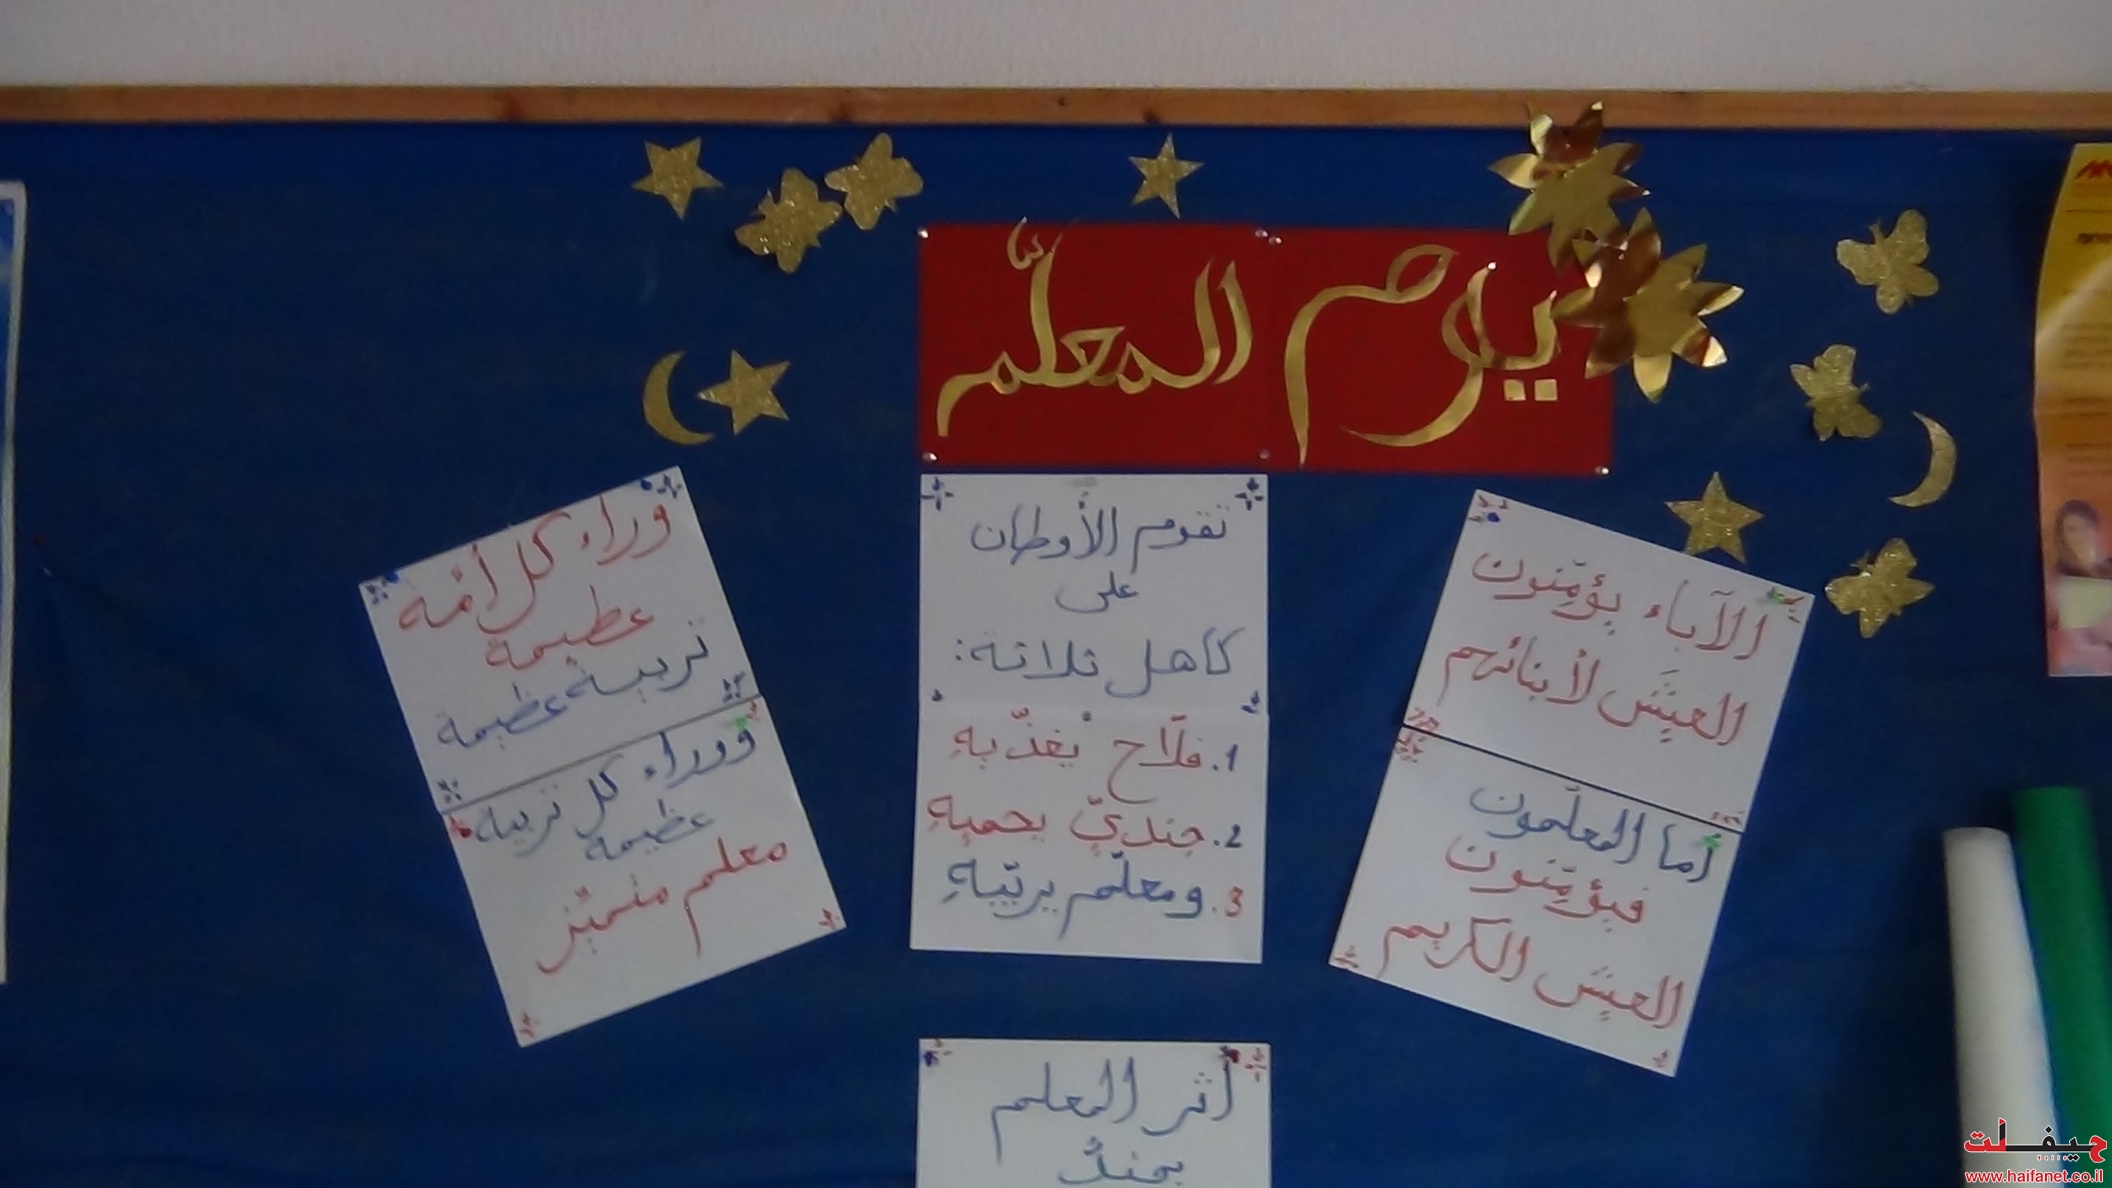 يوم المعلّم
الآباء يؤمّنون
العيَش لأبنائهم
أما المعلّمون
فيؤمّنون
العيش الكريم
تقوم الأوطان
على
كاهل ثلاثة:
1. فلّاح يغذّيهِ
2. جنديّ يحميهِ
3. ومعلّم يربّيهِ
وراء كل أمّة
عظيمة
تربية عظيمة
ووراء كل تربية
عظيمة
معلم متميّز
أثر المعلم
يمتدّ
حيفا نت
www.haifanet.co.il